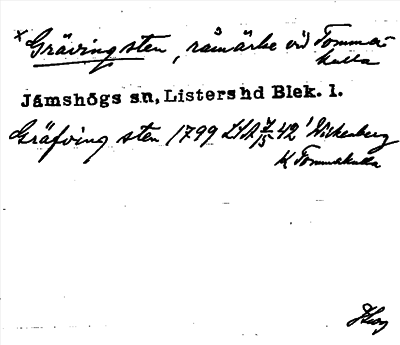 × Grävingsten, råmärke vid Tomma-
kulla
Jämshögs sn, Listers hd Blek. l.
Gräfving sten 1799 LSA 7/15 42' Wickenberg
K Tommakulla